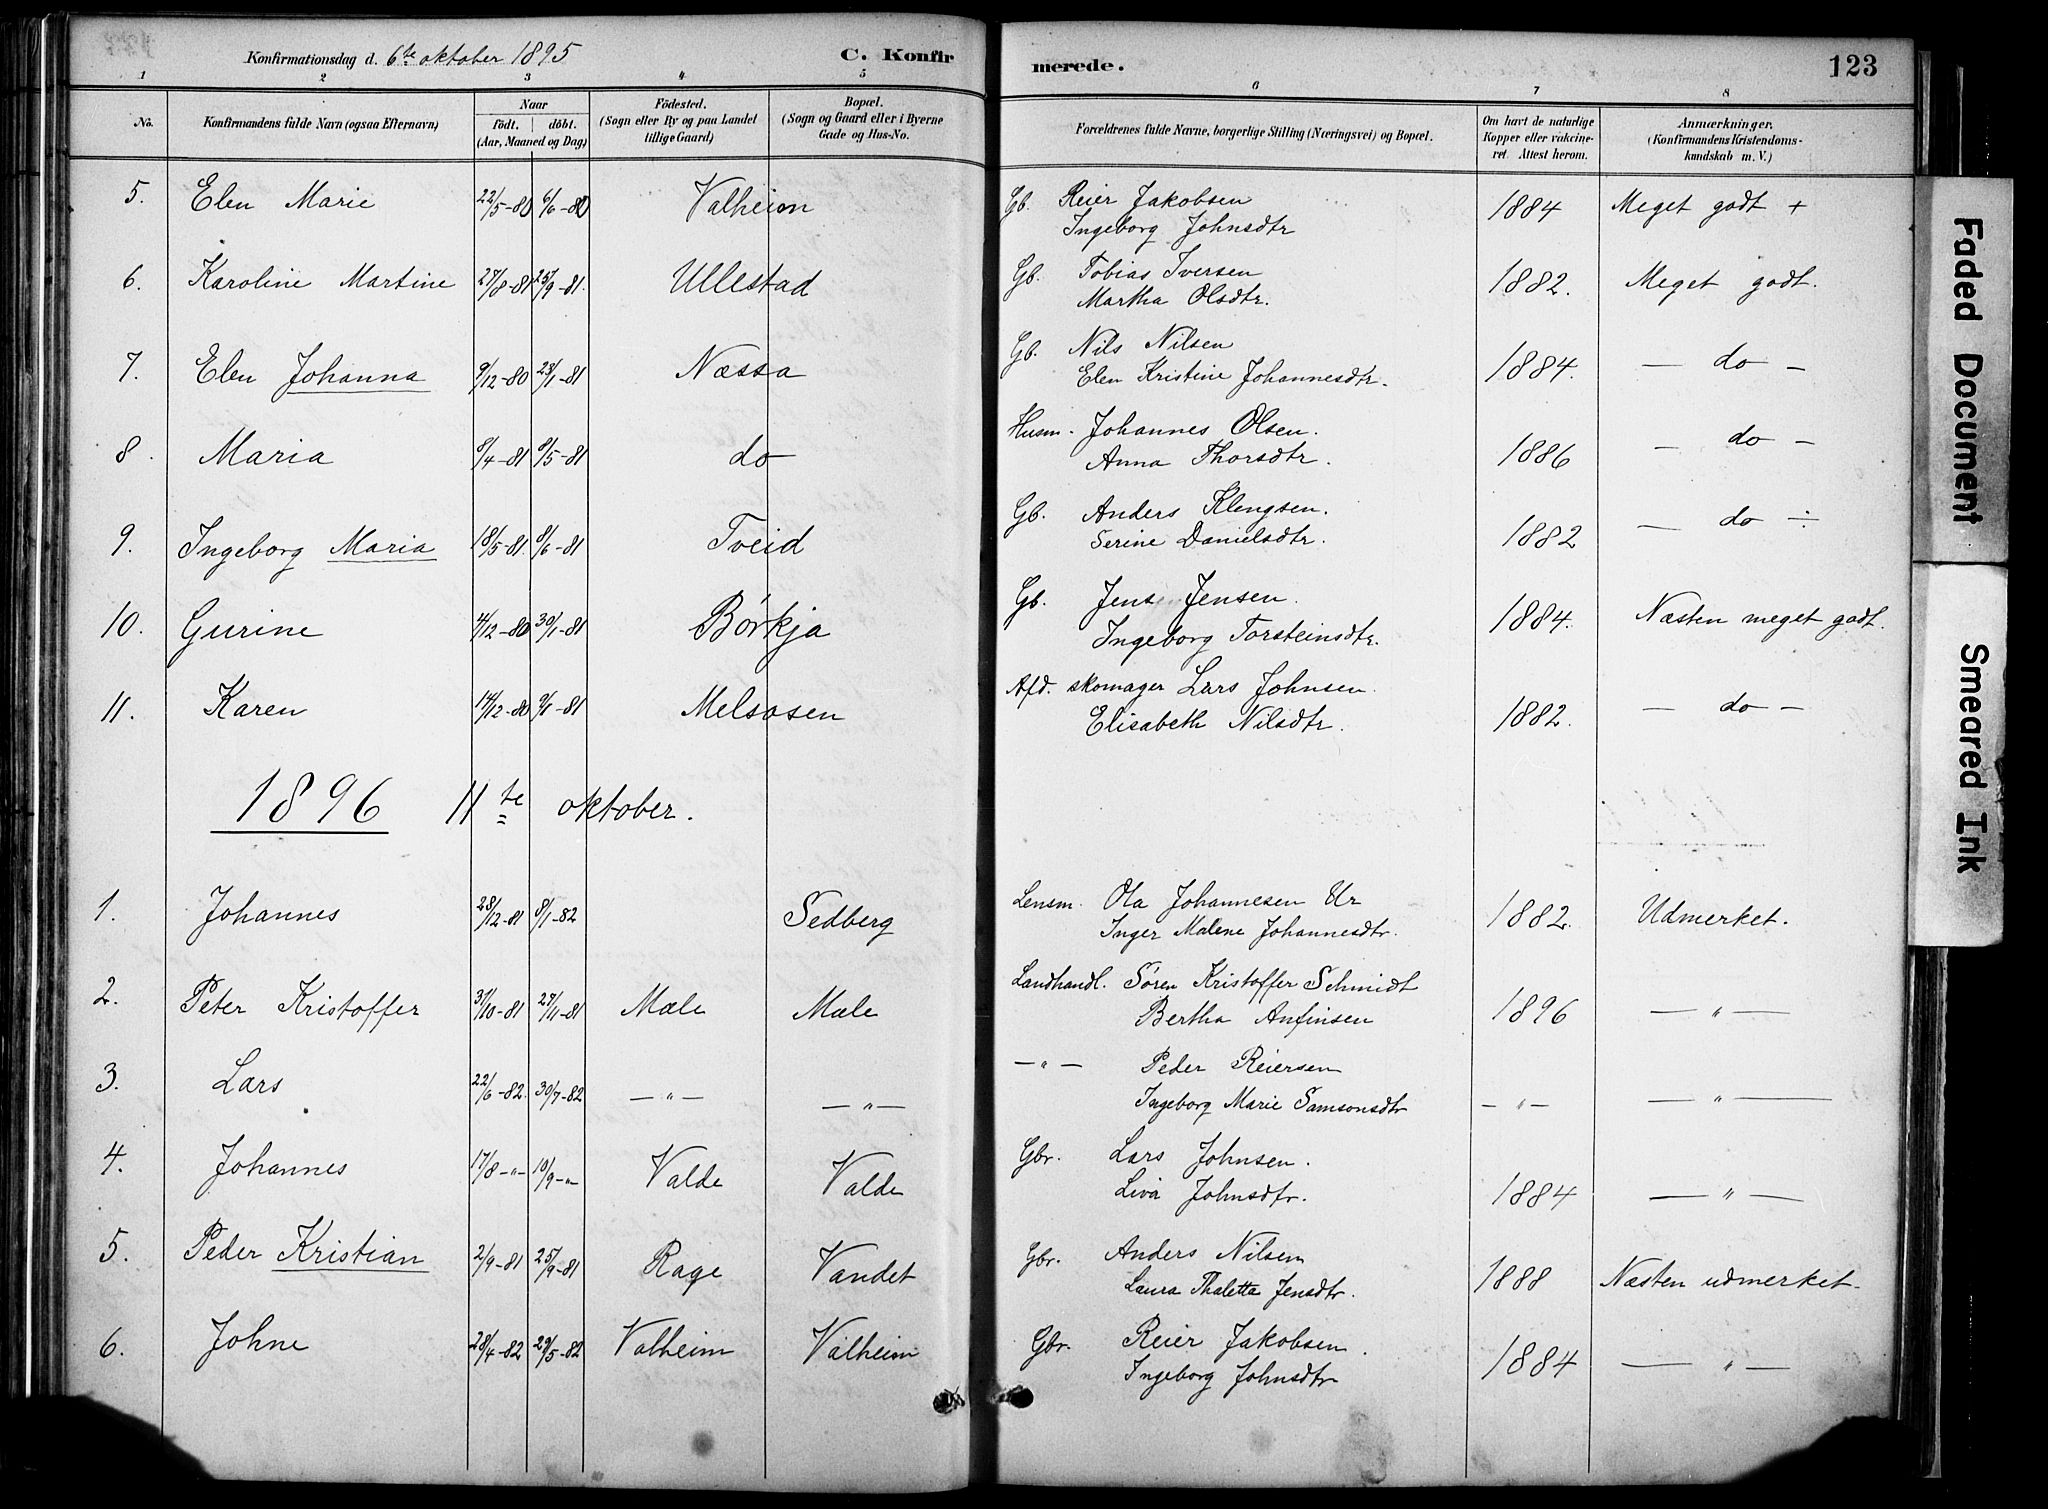 Konfirmationsdag d. 6te oktober 1895 C. Konfirmerede. 123
1 2 3 4 5 6 7 8
No. Konfirmandens fulde Navn (ogsaa Efternavn) Naar födt. döbt. (Aar, Maaned og Dag) Födested. (Sogn eller By og paa Landet tillige Gaard) Bopæl. (Sogn og Gaard eller i Byerne Gade og Hus-No. Forældrenes fulde Navne, borgerlige Stilling (Næringsvei) og Bopæl. Om havt de naturlige Kopper eller vakcineret. Attest herom. Anmærkninger, (Konfirmandens Kristendomskundskab m. V.)
5. Elen Marie 22/5-80 6/6-80 Valheim Gb. Reier Jakobsen 1884 Meget godt +
Ingeborg Johnsdtr
6. Karoline Martine 27/8-81 25/9-81. Ullestad Gb. Tobias Iversen 1882. Meget godt.
Martha Olsdtr.
7. Elen Johanna 9/12-80 23/1-81 Næssa Gb. Nils Nilsen 1884. — do —
Elen Kristine Johannesdtr.
8. Maria 8/4-81 8/5-81 do Husm. Johannes Olsen. 1886 — do —
Anna Thorsdtr.
9. Ingeborg Maria 18/5-81. 8/6-81 Tveid Gb. Anders Klengsen. 1882 — do ÷
Serine Danielsdtr.
10. Gurine 4/12-80 30/1-81 Børkja Gb. Jens Jensen. 1884. Næsten meget godt.
Ingeborg Torsteinsdtr.
11. Karen 14/12-80 9/1-81 Melsosen Afd. skomager Lars Johnsen. 1882. — do —
Elisabeth Nilsdtr.
1896 11te oktober.
1. Johannes 28/12-81 8/1-82 Sedberg Lensm. Ola Johannesen Ur 1882. Udmerket.
Inger Malene Johannesdtr.
2. Peter Kristoffer 31/10-81 27/11-81 Mæle Mæle Landhandl. Søren Kristoffer Schmidt 1896 — " —
Bertha Anfinsen
3. Lars 22/6-82. 30/7-82 — " — — " — — " — Peder Reiersen
Ingeborg Marie Samsonsdtr — " — — " —
4. Johannes 17/8-"- 10/9-"- Valde Valde Gbr. Lars Johnsen.
Liva Johnsdtr. 1884 — " —
5. Peder Kristian 2/9-81 25/9-81 Rage Vandet Gbr. Anders Nilsen 1888 Næsten udmerket.
Laura Thaletta Jensdtr.
6. Johne 28/4-82 29/5-82 Valheim Valheim Gbr. Reier Jakobsen. 1884 — " —
Ingeborg Johnsdtr
Faded Document
Smeared Ink